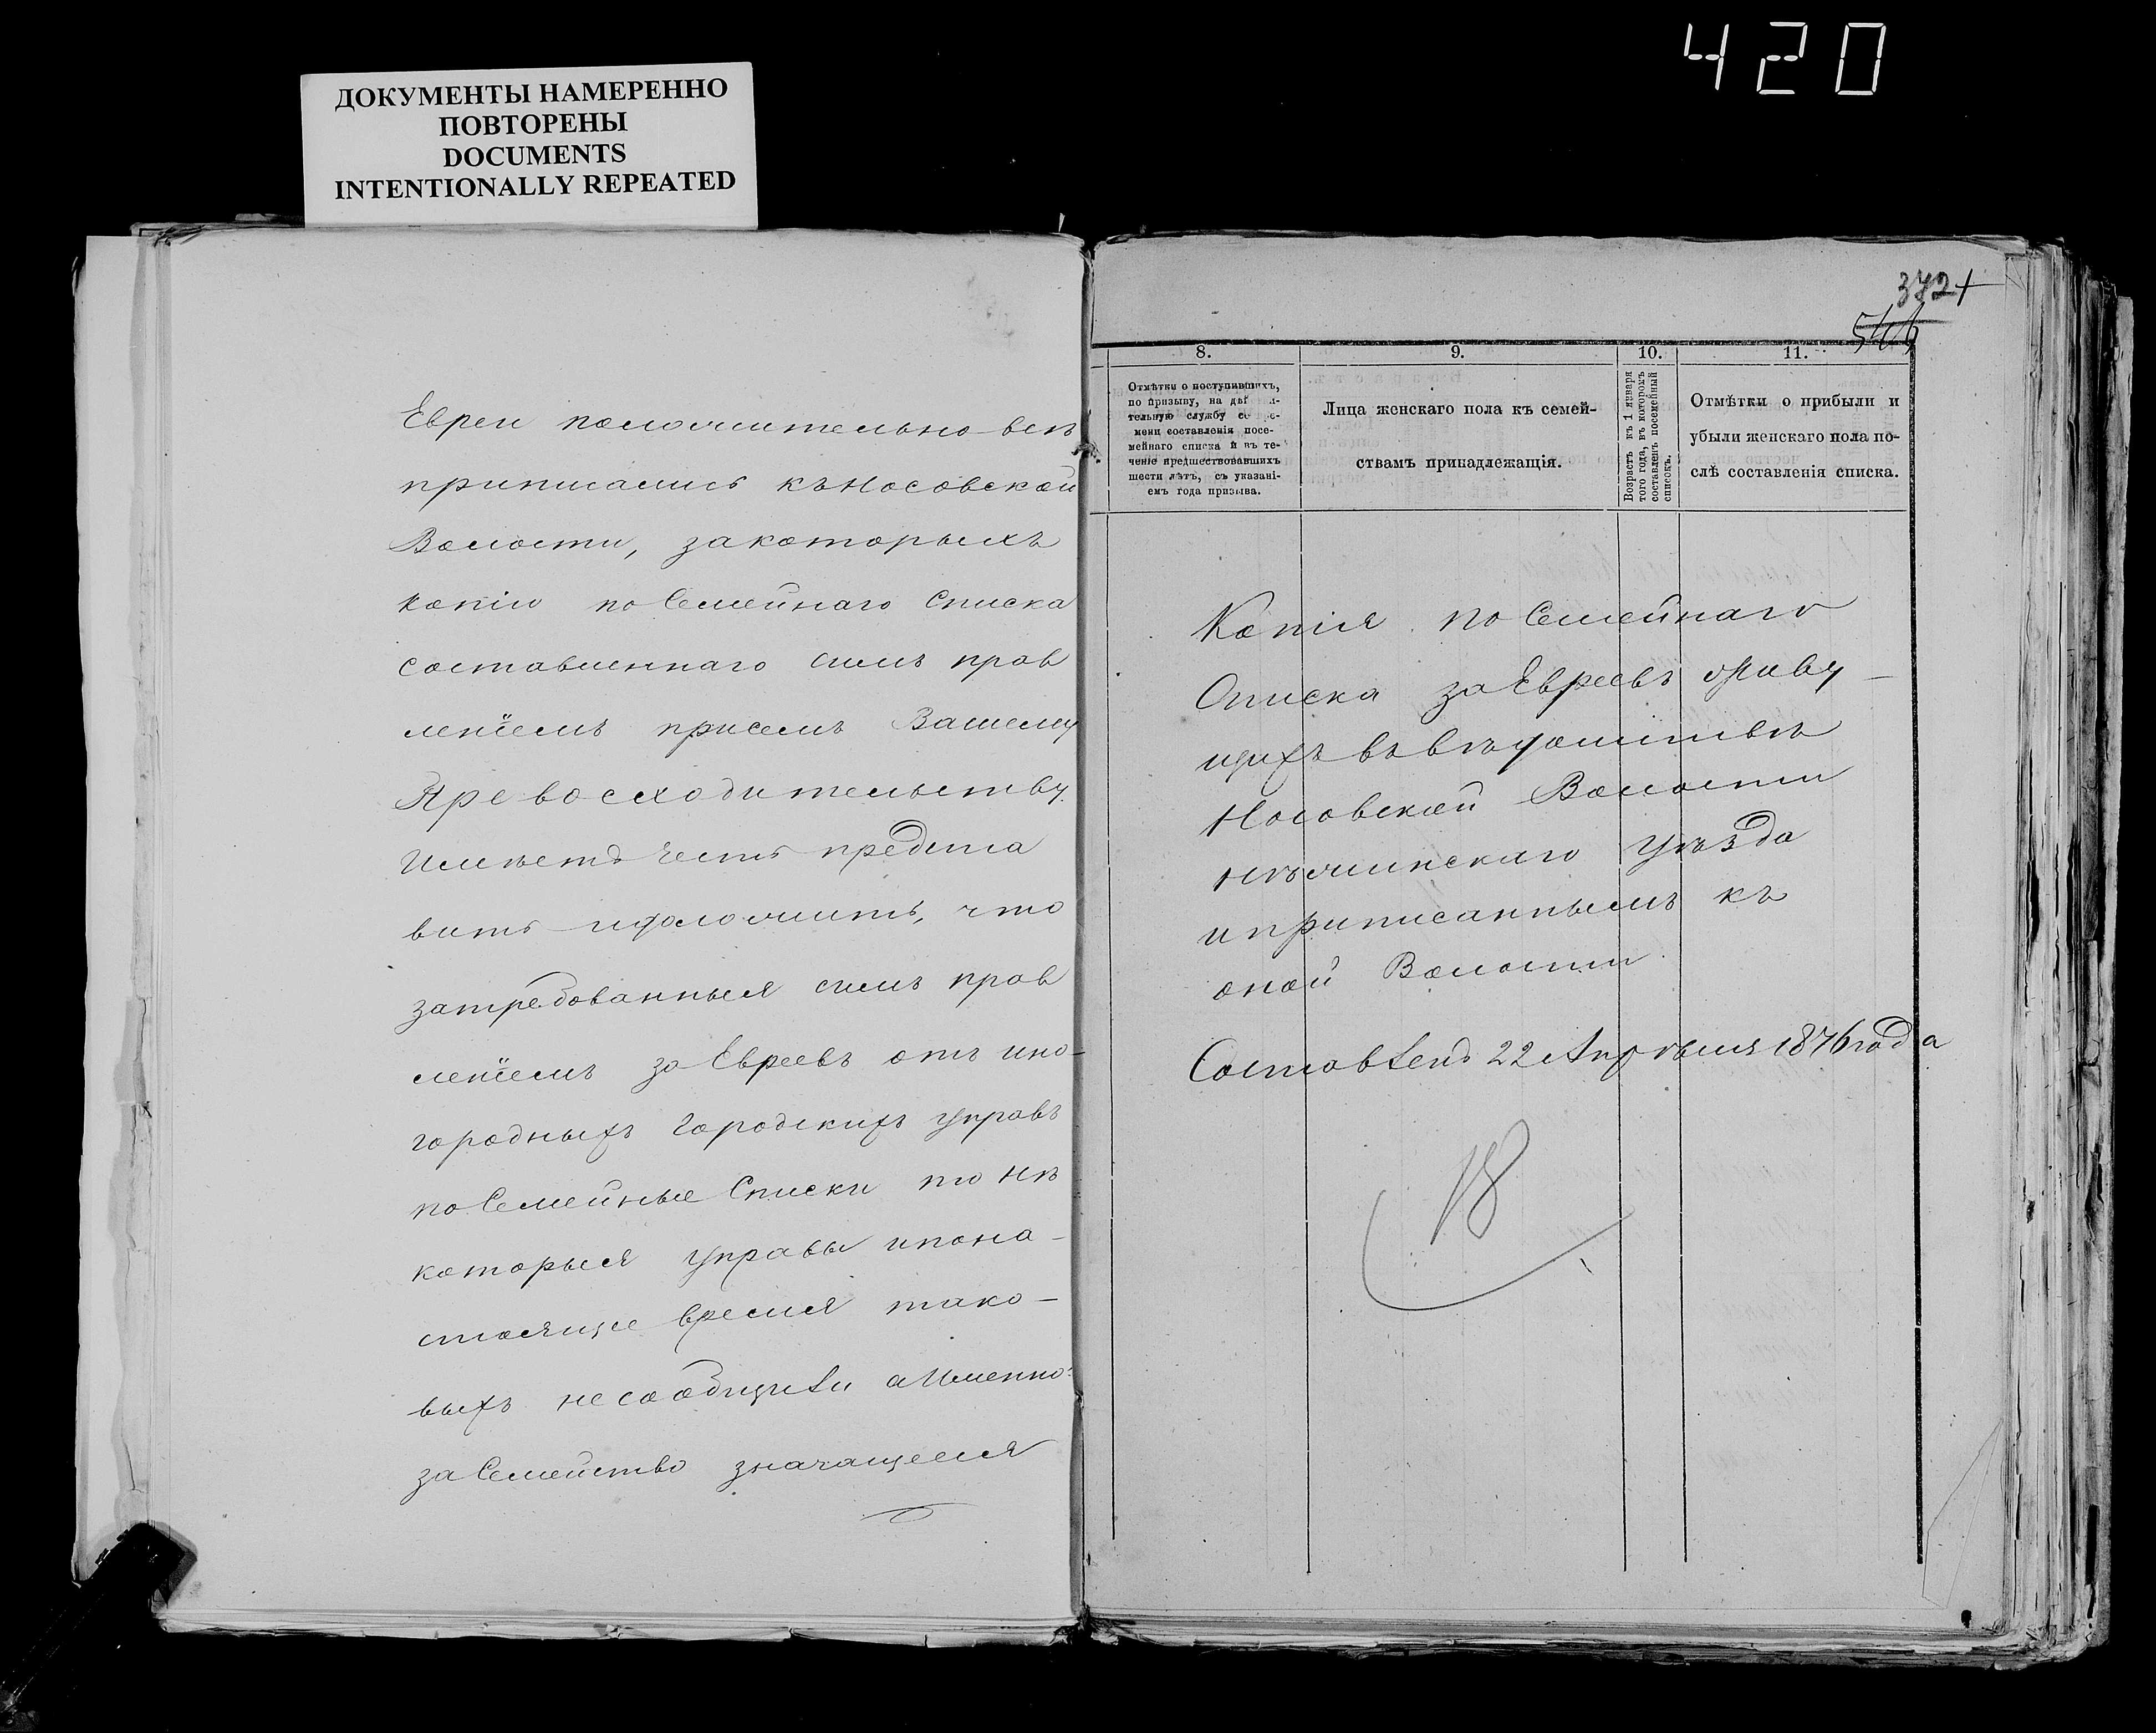 420
ДОКУМЕНТЫ НАМЕРЕННО
ПОВТОРЕНЫ
DOCUMENTS
INTENTIONALLY REPEATED
Евреи положительно всѣ
приписались къ Носовской
Волости, за которыхъ
копію по Семейнаго Списка
составленнаго симъ прав
леніемъ присемъ Вашему
Превосходительству
имѣетъ честь предста
вить и доложить, что
затребованныя симъ прав
леніемъ за Евреевъ отъ ино-
городныхъ Городскихъ управъ
по Семейные Списки то нѣ
которыя управы и по на-
стоящее время тако-
выхъ не сообщили а Именно:
за Семейство значащееся
372+
546
8.
9.
10.
11.
Отмѣтки о поступившихъ,
по призыву, на дѣ
тельную службу со
мени составленія посе-
мейнаго списка и въ те-
ченіе предшествовавшихъ
шести лѣтъ, съ указані-
емъ года призыва.
Лица женскаго пола къ семей-
ствамъ принадлежащія.
Возрастъ къ 1 января
того года, въ которомъ
составленъ посемейный
списокъ.
Отмѣтки о прибыли и
убыли женскаго пола по-
слѣ составленія списка.
Копія по Семейнаго
Списка за Евреевъ живу-
щихъ въ вѣдомствѣ
Носовской Волости
Нѣжинскаго Уѣзда
и приписаннымъ къ
оной Волости
Составленъ 22 Апрѣля 1876 года
18